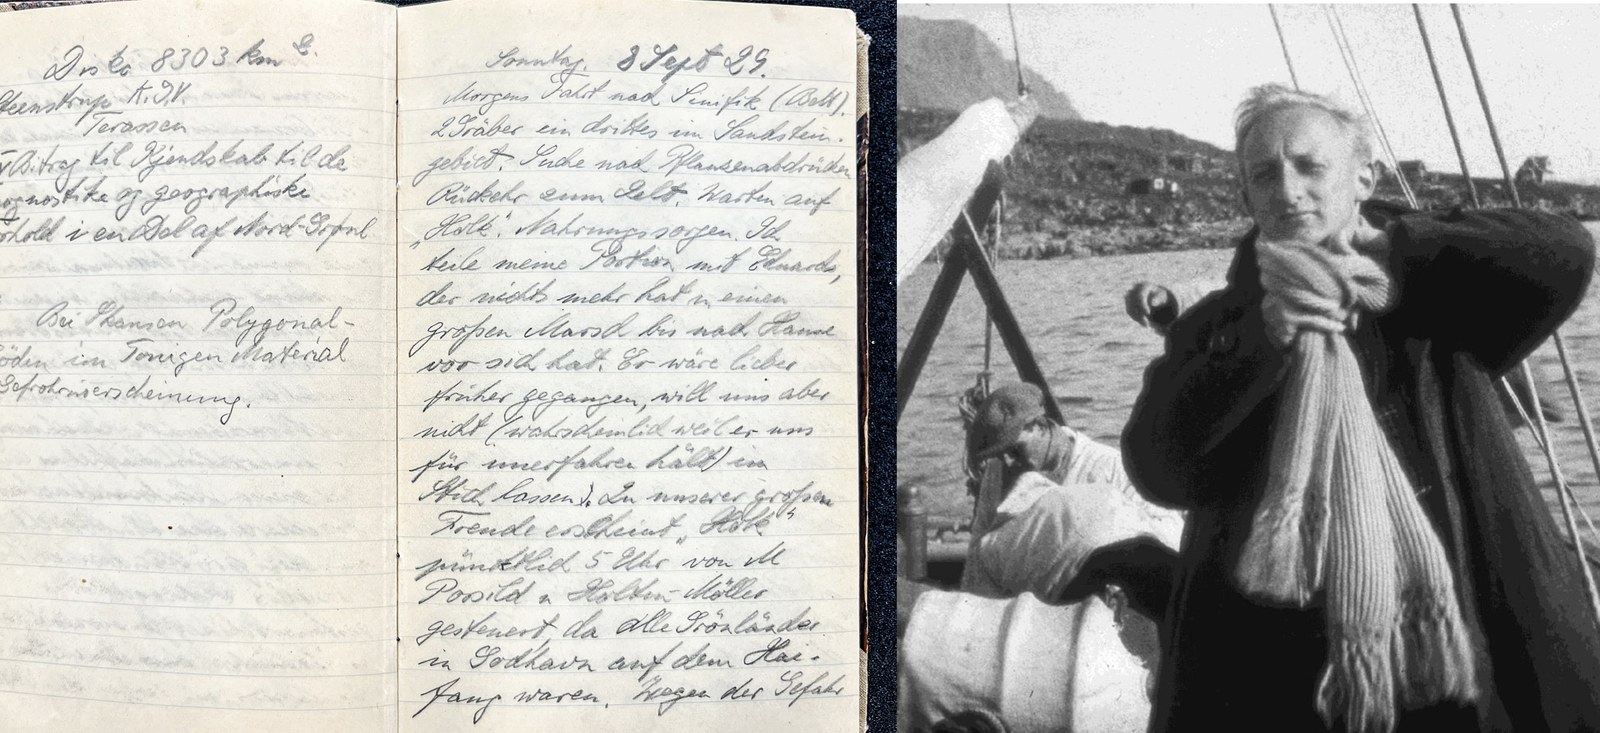 Disko 8303 km 2.
Steenstrup K.J.V.
Terassen
Bitrag til Kjendskab til de
ognostike og geographiske
orhold i en Del af Nord-Grönl
Bei Skansen Polygonal-
öden im Tonigen Material
Gefrornerscheinung.
Sonntag, 8 Sept 29.
Morgens Fahrt nach Sinifik (Bott).
2 Gräber ein drittes im Sandstein-
gebiet. Suche nach Pflanzenabdrücken
Rückehr zum Zelt. Warten auf
„Holk". Nahrungssorgen. Ich
teile meine Portion mit Eduards,
der nichts mehr hat u einen
großen Marsch bis nach Hause
vor sich hat. Er wäre lieber
früher gegangen, will uns aber
nicht (wahrscheinlich weil er uns
für unerfahren hält) im
Stich lassen). Zu unserer großen
Freude erscheint „Holk"
pünktlich 5 Uhr von M
Porsild u Holten-Möller
gesteuert, da alle Grönländer
in Godhavn auf dem Hai-
fang waren. Wegen der Gefahr